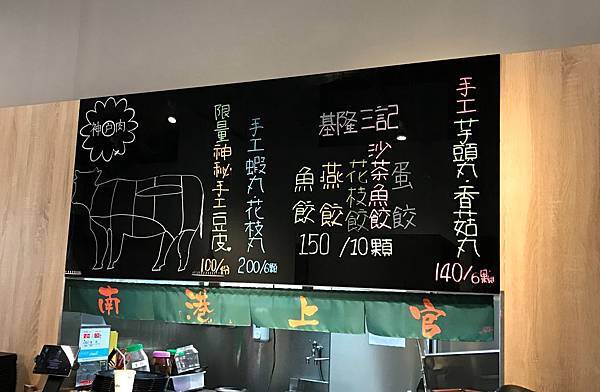 手工芋頭丸·香菇丸
140/6顆
基隆三記
蛋餃
沙茶魚餃
花枝餃
燕餃
魚餃
150/10顆
手工蝦丸 花枝丸
200/6顆
限量神秘手工豆皮
100/份
神內肉
南港上官